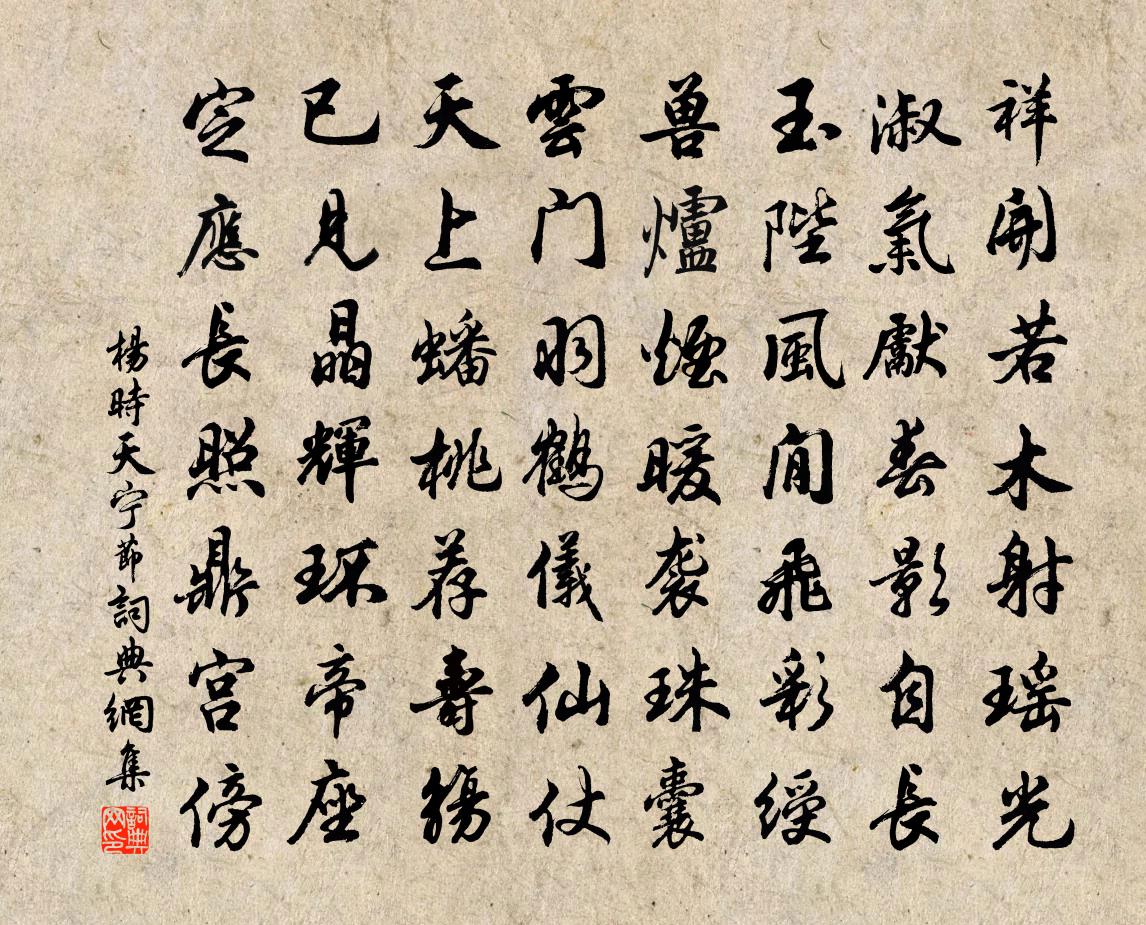 祥開若木射瑶光
淑氣獻春影自長
玉陛風閒飛彩綬
兽爐煙暖袭珠囊
雲门羽鶴儀仙仗
天上蟠桃荐壽觴
已見晶輝环帝座
定應長照鼎宫傍
楊時天宁節詞典網集
詞典网印